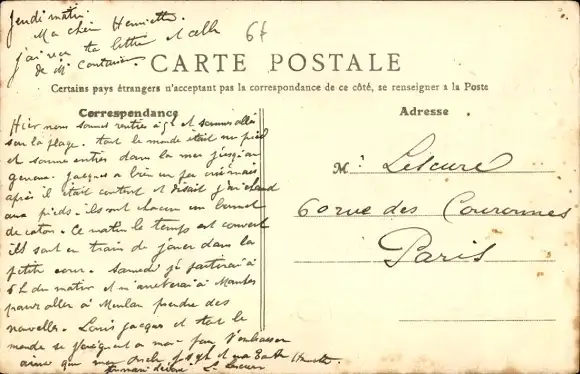 Jeudi matin
Ma chère Henriette
67
j'ai reçu ta lettre et celle
de Mr
CARTE POSTALE
Certains pays étrangers n'acceptant pas la correspondance de ce côté, se renseigner à la Poste
Correspondance
Adresse
Hier nous sommes rentrés à et sommes allés
sur la plage. tout le monde était nu pied
et sommes entrés dans la mer jusqu'au
genoux. Jacques a bien un peu crié mais
après il était content et disait j'ai chaud
aux pieds. ils ont chacun un bonnet
de coton. Ce matin le temps est couvert
ils sont en train de jouer dans la
petite cour. Samedi je partirai à
5h du matin et m'arreterai à Mantes
pour aller à Meulan prendre des
nouvelles. Louis Jacques et tout le
monde se à moi pour t'embrasser
ainsi que mon oncle
L. Lescure
M. Lescure
60 rue des Couronnes
Paris